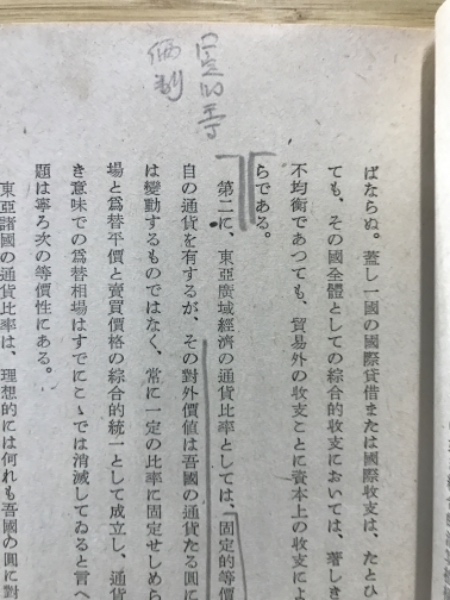 固的等
価制
ばならぬ。蓋し一國の國際貸借または國際收支は、たとひ
ても、その國全體としての綜合的收支においては、著しき
不均衡であつても、貿易外の收支ことに資本上の收支によ
らである。
第二に、東亞廣域經濟の通貨比率としては、固定的等價
自の通貨を有するが、その對外價値は吾國の通貨たる圓に
は變動するものではなく、常に一定の比率に固定せしめら
場と爲替平價と賣買價格の綜合的統一として成立し、通貨
き意味での爲替相場はすでにこゝでは消滅してゐると言へ
題は寧ろ次の等價性にある。
東亞諸國の通貨比率は、理想的には何れも吾國の圓に對